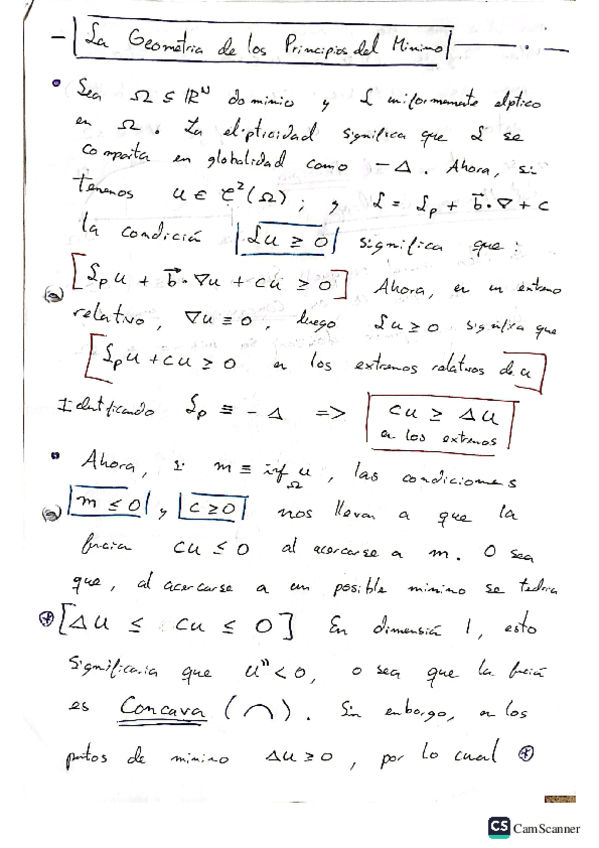 - La Geometría de los Principios del Mínimo
• Sea Ω ⊆ ℝᴺ dominio y ℒ uniformemente elíptico
en Ω. La elipticidad significa que ℒ se
comporta en globalidad como -Δ. Ahora, si
tenemos u ∈ 𝒞²(Ω); y ℒ = ℒₚ + b⃗·∇ + c
la condición |ℒu ≥ 0| significa que:
[ℒₚu + b⃗·∇u + cu ≥ 0] Ahora, en un extremo
relativo, ∇u ≡ 0, luego ℒu ≥ 0 significa que
[ℒₚu + cu ≥ 0 en los extremos relativos de u]
Identificando ℒₚ ≡ -Δ => cu ≥ Δu
en los extremos
• Ahora, si m ≡ inf u, las condiciones
Ω
|m ≤ 0| y |c ≥ 0| nos llevan a que la
función cu ≤ 0 al acercarse a m. O sea
que, al acercarse a un posible mínimo se tendría
⊛ [Δu ≤ cu ≤ 0] En dimensión 1, esto
significaría que u'' < 0, o sea que la función
es Cóncava (⌒). Sin embargo, en los
puntos de mínimo Δu ≥ 0, por lo cual ⊛
CS CamScanner